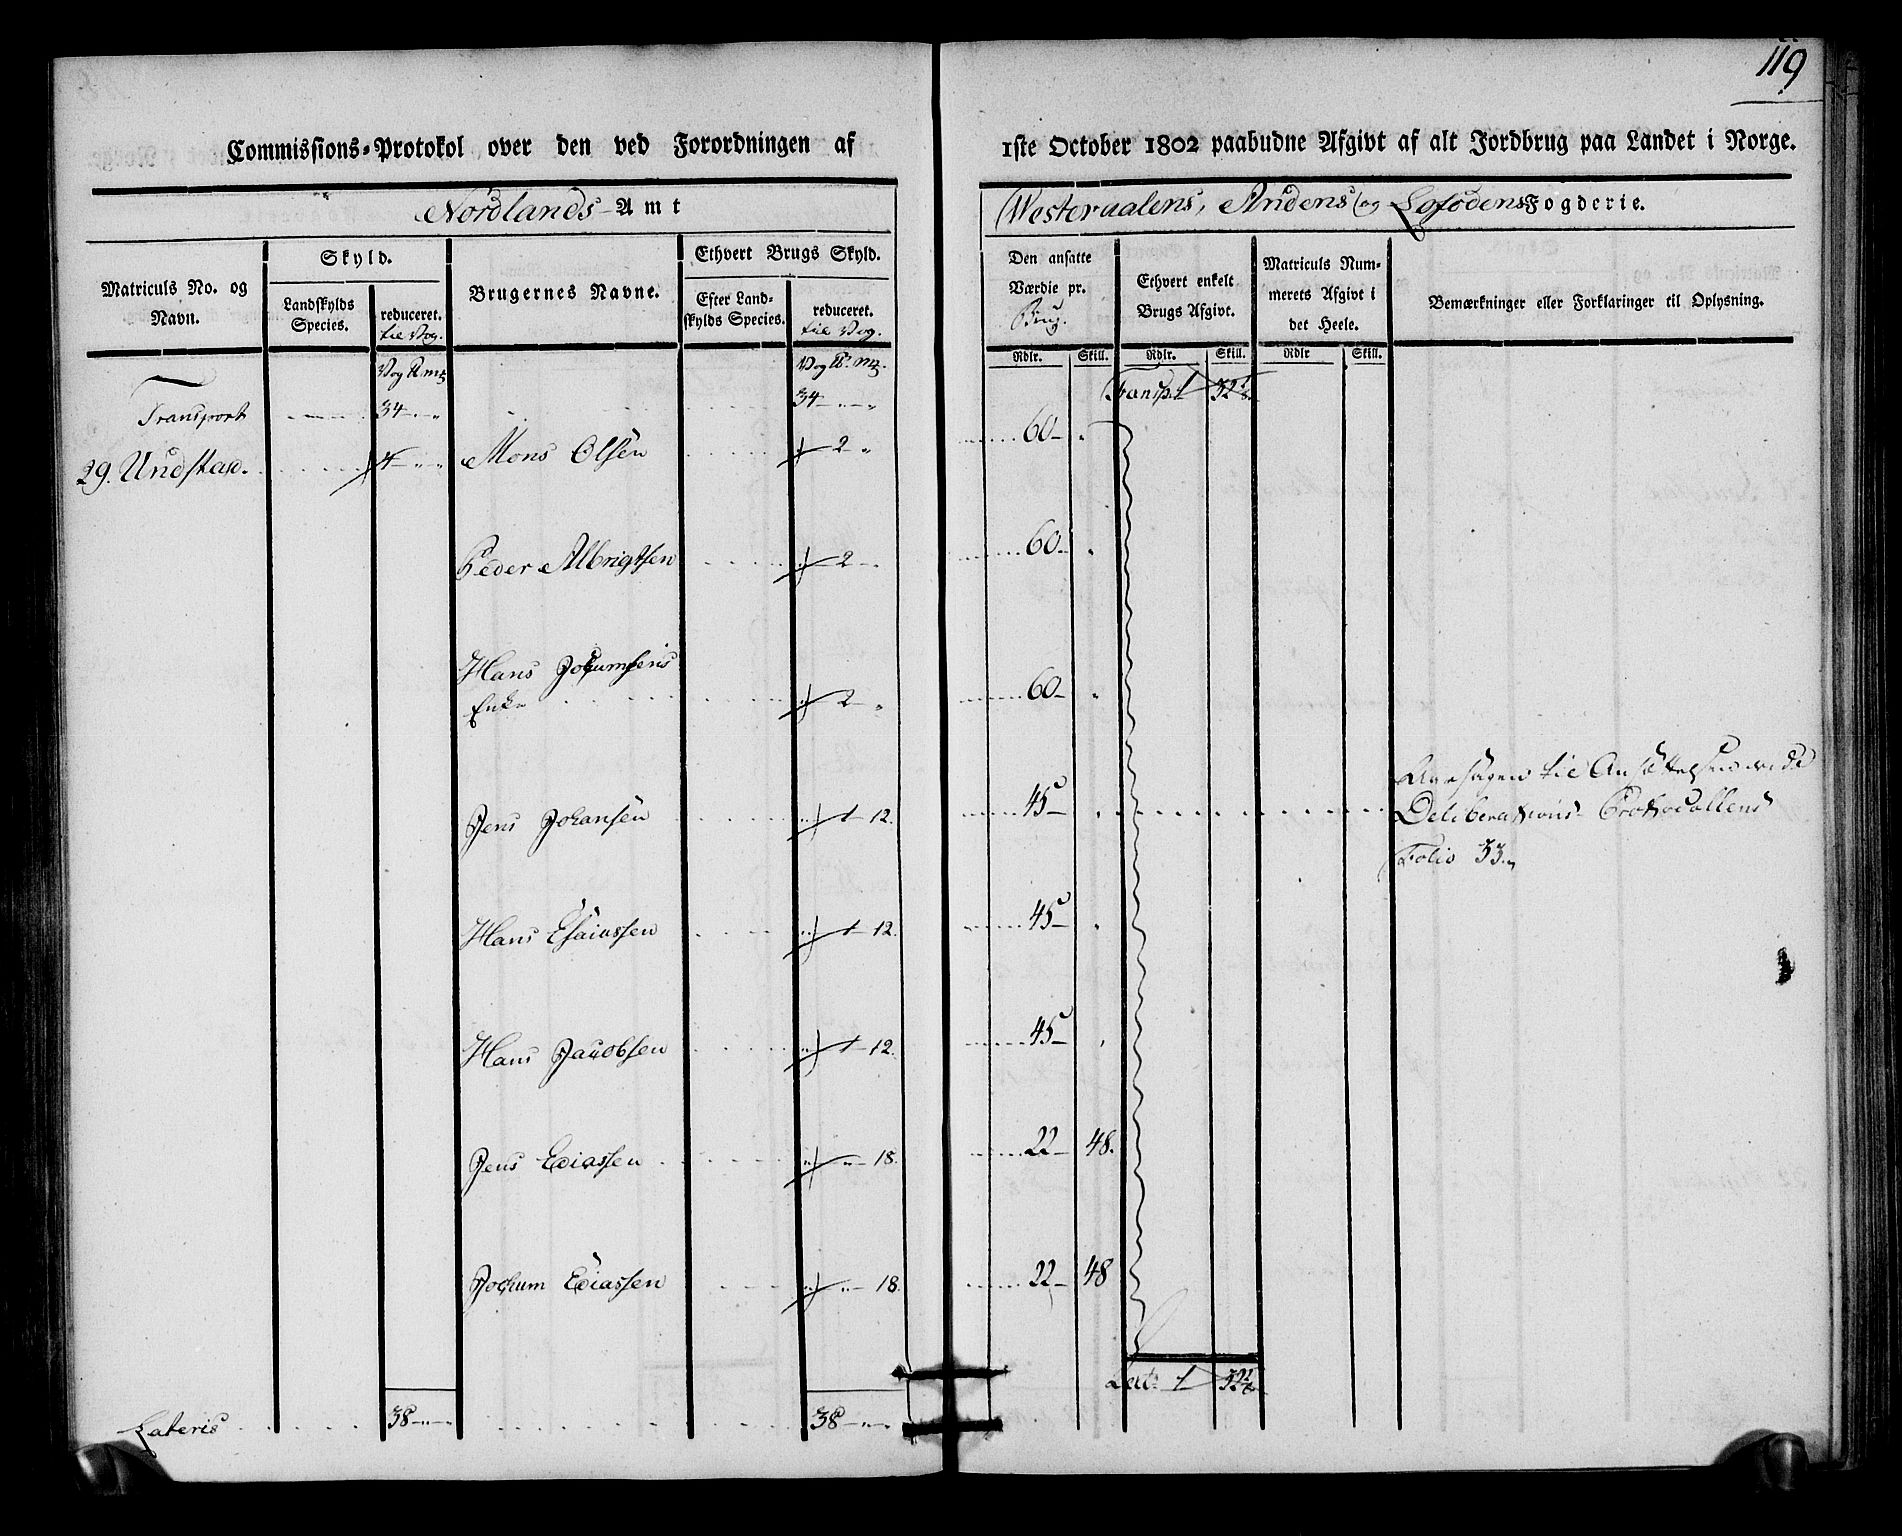 119
Commissions-Protokol over den ved Forordningen af 1ste October 1802 paabudne Afgivt af alt Jordbrug paa Landet i Norge.
Nordlands Amt
Westeraalens, Andens og Lofodens Fogderie.
Matriculs No. og Navn.
Skyld.
Landskylds Species.
reduceret. til Vog.
Brugernes Navne.
Ethvert Brugs Skyld.
Efter Landskylds Species.
reduceret. til Vog.
Den ansatte Værdie pr. Brug.
Ethvert enkelt Brugs Afgivt.
Matriculs Nummerets Afgivt i det Heele.
Bemærkninger eller Forklaringer til Oplysning.
Rdlr. Skill. Rdlr. Skill. Rdlr Skill.
Vog ℔ mk Vog ℔ mk.
Transport 34 - „ - „ 34 - „ - „ Transp. 1
29. Undstad. 4 - „ - „ Mons Olsen 2 „ 60 - „
Peder Albrigtsen 2 - „ 60 - „
Hans Jochumsens
Enke 2 - „ 60 - „
Jens Johansen 1 - 12. 45 - „
Aarsagen til Ansættelsen vide
Deliberations Protocollens
Folio 33.
Hans Esaiassen 1 - 12. 45 - „
Hans Jacobsen 1 - 12. 45 - „
Jens Eliassen „ - 18. 22 - 48.
Jochum Eliassen „ - 18. 22 - 48
Lateris 38 - „ - „ 38 - „ - „ Lat: 1